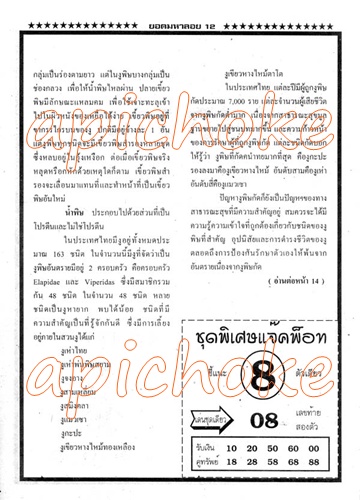 ยอดมหาลอย 12
กลุ่มเป็นร่องตามยาว แต่ในงูพิษบางกลุ่มเป็น
ช่องกลวง เพื่อให้น้ำพิษไหลผ่าน ปลายเขี้ยว
พิษมีลักษณะแหลมคม เพื่อใช้เจาะทะลุเข้า
ไปในผิวหนังของเหยื่อได้ง่าย เขี้ยวพิษอยู่ที่
ขากรรไกรบนของงู ปกติมีอยู่ข้างละ 1 อัน
แต่งูพิษทุกชนิดจะมีเขี้ยวพิษสำรองหลายชุด
ซึ่งหลบอยู่ในอุ้งเหงือก ต่อเมื่อเขี้ยวพิษจริง
หลุดหรือหักด้วยเหตุใดก็ตาม เขี้ยวพิษสำ
รองจะเลื่อนมาแทนที่และทำหน้าที่เป็นเขี้ยว
พิษอันใหม่
น้ำพิษ ประกอบไปด้วยส่วนที่เป็น
โปรตีนและไม่ใช่โปรตีน
ในประเทศไทยมีงูอยู่ทั้งหมดประ
มาณ 163 ชนิด ในจำนวนนี้มีงูที่จัดว่าเป็น
งูพิษอันตรายมีอยู่ 2 ครอบครัว คือครอบครัว
Elapidae และ Viperidas ซึ่งมีสมาชิกรวม
กัน 48 ชนิด ในจำนวน 48 ชนิด หลาย
ชนิดเป็นงูหายาก พบได้น้อย ชนิดที่มี
ความสำคัญเป็นที่รู้จักกันดี ซึ่งมีการเลี้ยง
อยู่ภายในสวนงูได้แก่
งูเห่าไทย
งูเห่าพ่นพิษสยาม
งูจงอาง
งูสามเหลี่ยม
งูทับสมิงคลา
งูแมวเซา
งูกะปะ
งูเขียวหางไหม้ทองเหลือง
งูเขียวหางไหม้ตาโต
ในประเทศไทย แต่ละปีมีผู้ถูกงูพิษ
กัดประมาณ 7,000 ราย แต่ละจำนวนผู้เสียชีวิต
จากงูพิษกัดต่ำมาก เนื่องจากสาธารณะสุขมูล
ฐานขยายไปสู่ชนบทมากขึ้น และความก้าวหน้า
ของการรักษาผู้ที่ถูกงูพิษกัด และชนิดกัดบอก
ให้รู้ว่า งูพิษที่กัดคนไทยมากที่สุด คืองูกะปะ
รองลงมาคืองูเขียวหางไหม้ อันดับสามคืองูเห่า
อันดับสี่คืองูแมวเซา
ปัญหางูพิษกัดก็ยังเป็นปัญหาของทาง
สาธารณะสุขที่มีความสำคัญอยู่ สมควรจะได้มี
ความรู้ความเข้าใจที่ถูกต้องเกี่ยวกับชนิดของงู
พิษที่สำคัญ อุปนิสัยและการดำรงชีวิตของงู
ตลอดถึงการป้องกันรักษาตัวเองให้พ้นจาก
อันตรายเนื่องจากงูพิษกัด
( อ่านต่อหน้า 14 )
ชุดพิเศษแจ๊คพ็อท
ชี้แนะ 8 ตัวเดียว
เด่นชุดเดียว 08 เลขท้าย
สองตัว
รับเงิน 10 20 50 60 00
คู่ทรัพย์ 18 28 58 68 88
apichoke
apichoke
apichoke